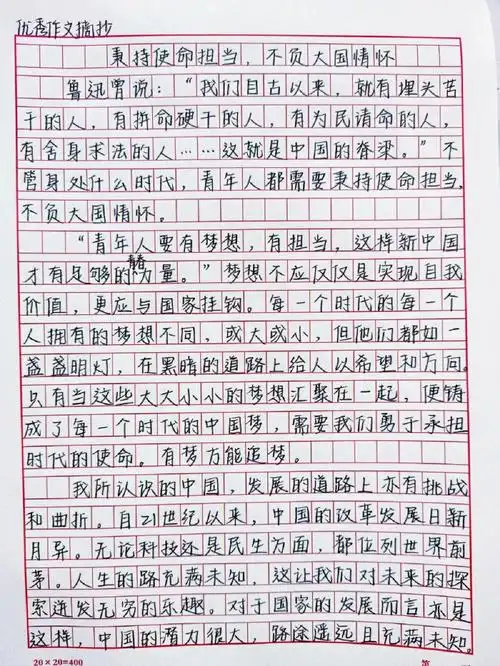 优秀作文摘抄
秉持使命担当，不负大国情怀
鲁迅曾说：“我们自古以来，就有埋头苦
干的人，有拼命硬干的人，有为民请命的人，
有舍身求法的人……这就是中国的脊梁。”不
管身处什么时代，青年人都需要秉持使命担当，
不负大国情怀。
“青年人要有梦想，有担当，这样新中国
才有足够的青春力量。”梦想不应仅仅是实现自我
价值，更应与国家挂钩。每一个时代的每一个
人拥有的梦想不同，或大或小，但他们都如一
盏盏明灯，在黑暗的道路上给人以希望和方向。
只有当这些大大小小的梦想汇聚在一起，便铸
成了每一个时代的中国梦，需要我们勇于承担
时代的使命。有梦方能追梦。
我所认识的中国，发展的道路上亦有挑战
和曲折。自21世纪以来，中国的改革发展日新
月异。无论科技还是民生方面，都位列世界前
茅。人生的路充满未知，这让我们对未来的探
索迸发无穷的乐趣。对于国家的发展而言亦是
这样，中国的潜力很大，路途遥远且充满未知。
20×20=400